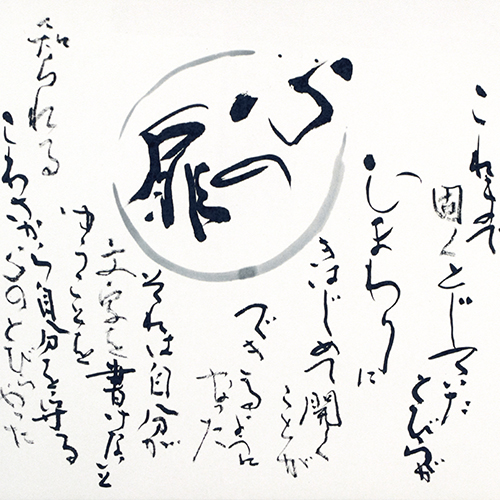 これまで
固くとじていた
とびらが
ひまわりに
きはじめて開く
ことが
できるように
なった
心の
扉
それは自分が
文字を書けないと
ゆうことを
知られる
こわさから自分を守る
心のとびらだった